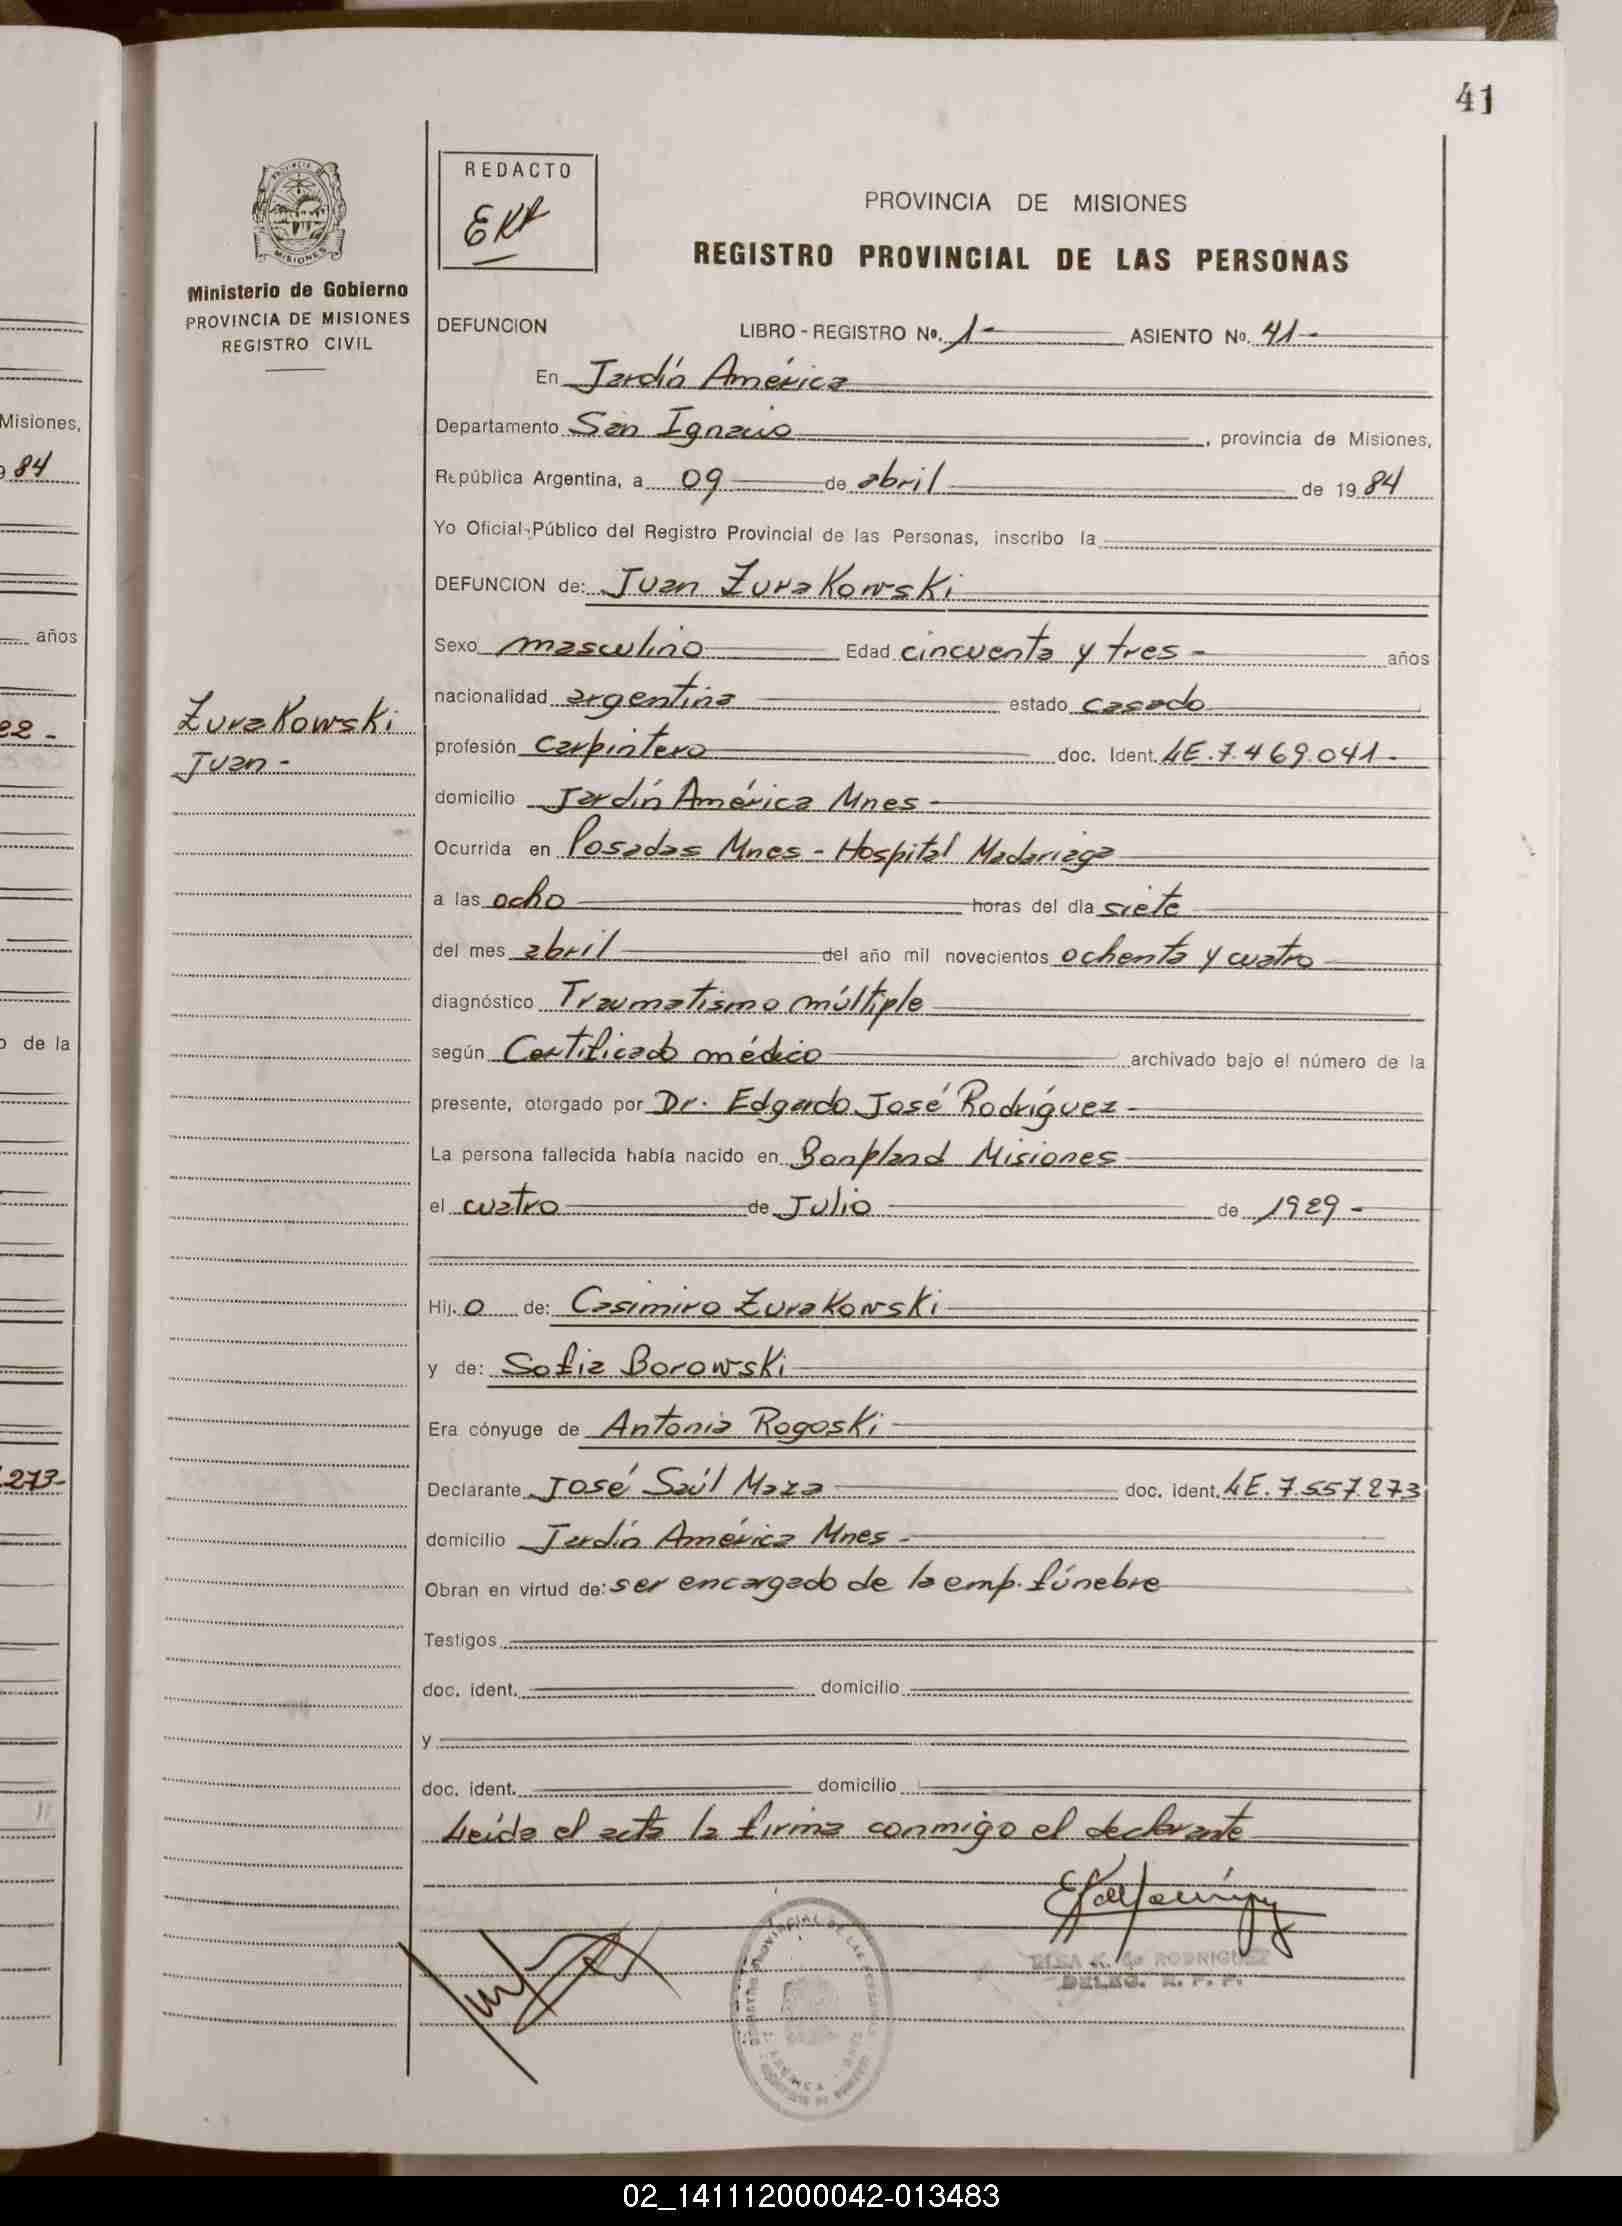 41
REDACTO
EKR
PROVINCIA DE MISIONES
REGISTRO PROVINCIAL DE LAS PERSONAS
Ministerio de Gobierno
PROVINCIA DE MISIONES
REGISTRO CIVIL
DEFUNCION LIBRO - REGISTRO Nº. 1- ASIENTO No. 41-
En Jardín América
Departamento San Ignacio, provincia de Misiones,
República Argentina, a 09 de abril de 1984
Yo Oficial Público del Registro Provincial de las Personas, inscribo la
DEFUNCION de: Juan Zurakowski
Sexo masculino Edad cincuenta y tres - años
nacionalidad argentina estado casado
Zurakowski
Juan -
profesión carpintero doc. Ident. LE. 7.469.041-
domicilio Jardín América Mnes -
Ocurrida en Posadas Mnes - Hospital Madariaga
a las ocho horas del día siete
del mes abril del año mil novecientos ochenta y cuatro
diagnóstico Traumatismo múltiple
según Certificado médico archivado bajo el número de la
presente, otorgado por Dr. Edgardo José Rodríguez -
La persona fallecida había nacido en Bonpland Misiones
el cuatro de Julio de 1929 -
Hij o de: Casimiro Zurakowski
y de: Sofia Borowski
Era cónyuge de Antonia Rogoski
Declarante José Saúl Maza doc. ident. LE. 7.557.273
domicilio Jardín América Mnes -
Obran en virtud de: ser encargado de la emp. fúnebre
Testigos
doc. ident. domicilio
y
doc. ident. domicilio
Leída el acta la firma conmigo el declarante
ELSA K. de RODRIGUEZ
DELEG. R. P. P.
Misiones,
9 84
años
22 -
o de la
.273-
02_141112000042-013483